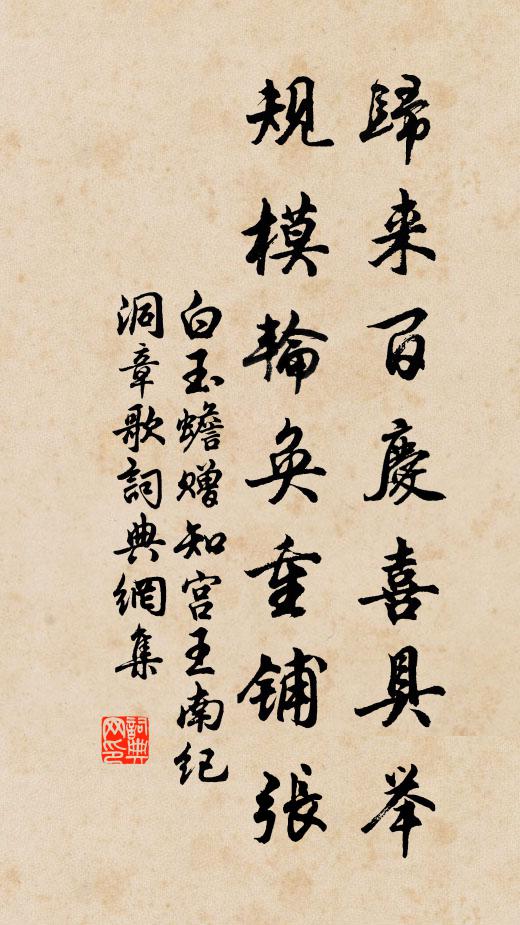 歸来百慶喜具举
規模輪奐重铺張
白玉蟾赠知宫王南纪
洞章歌詞典網集
詞典网印